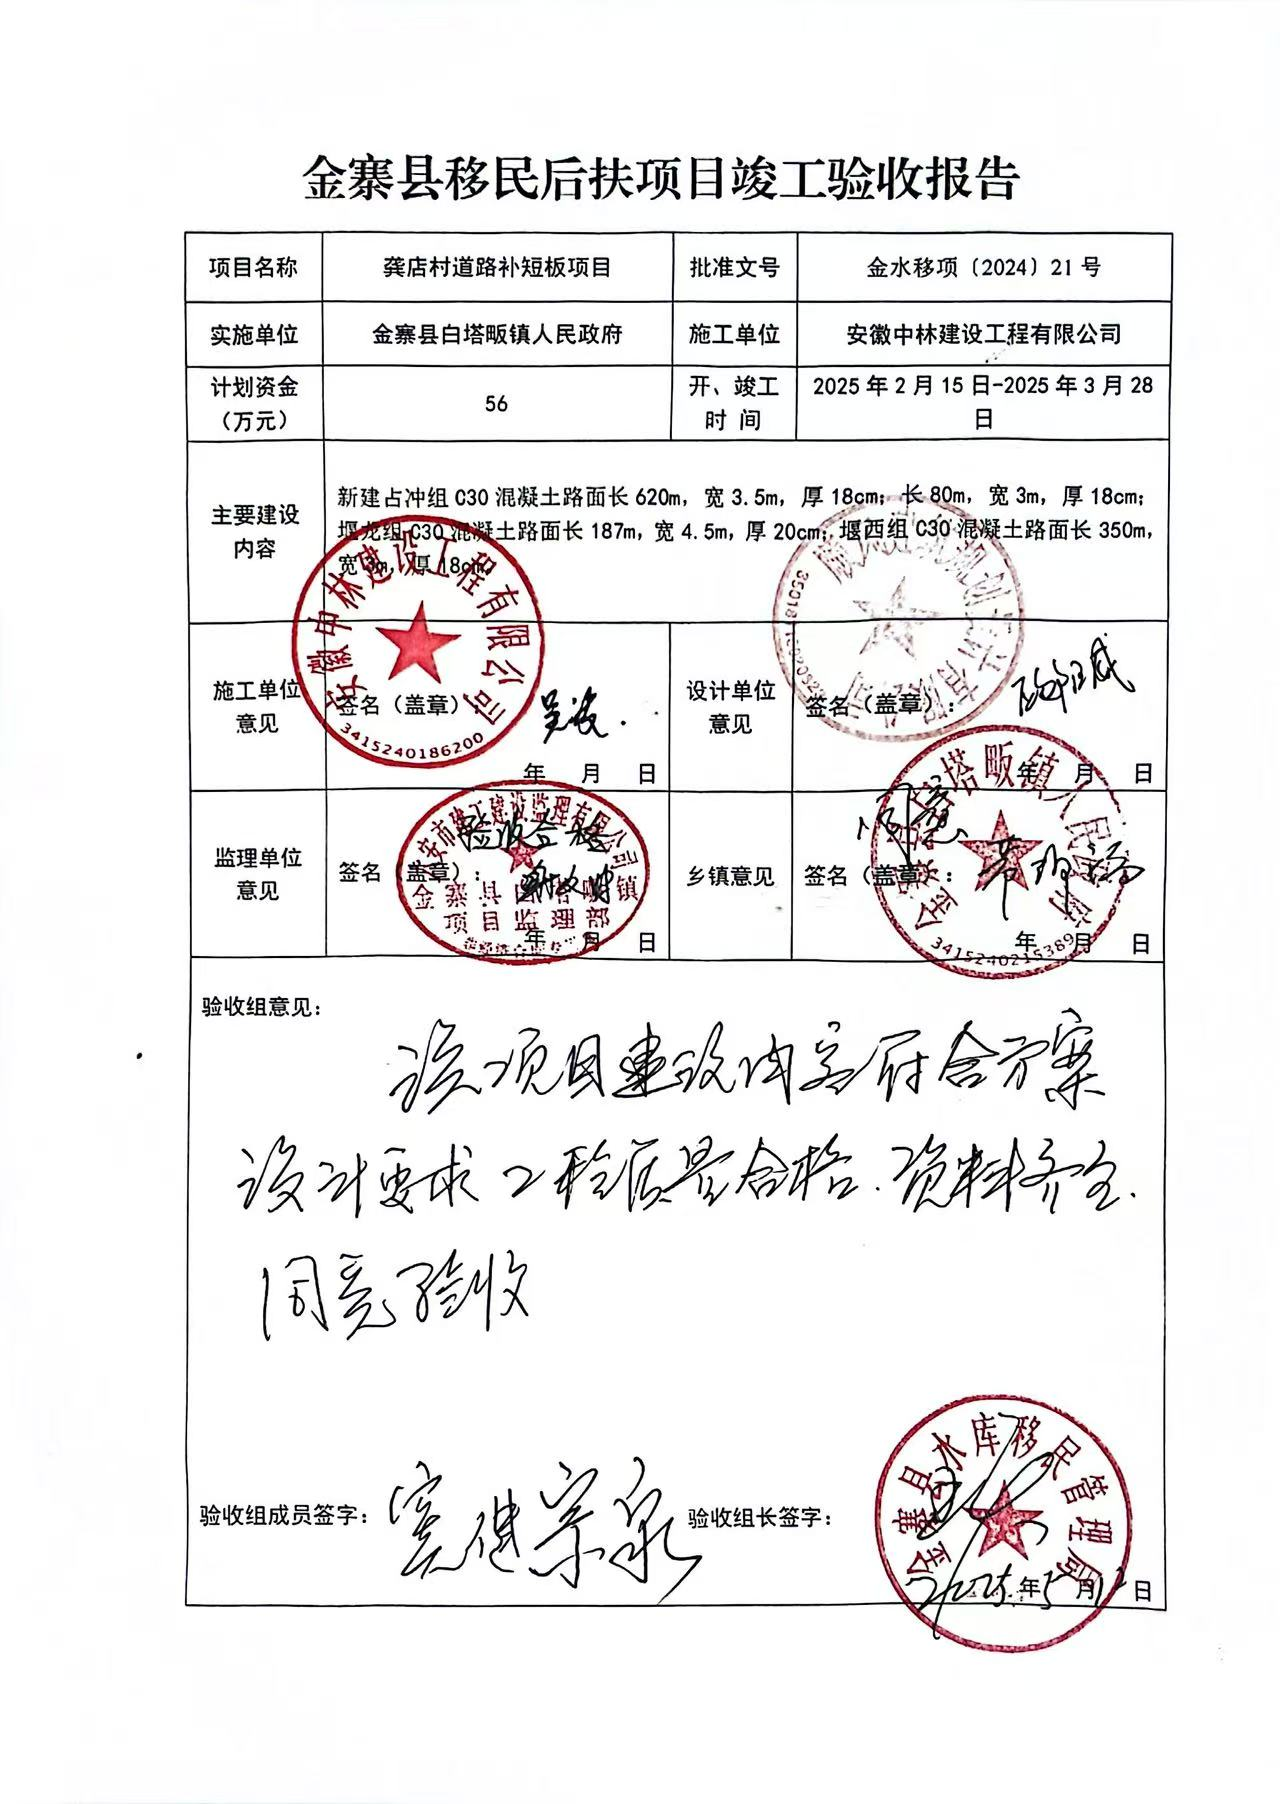 金寨县移民后扶项目竣工验收报告
项目名称 龚店村道路补短板项目 批准文号 金水移项〔2024〕21号
实施单位 金寨县白塔畈镇人民政府 施工单位 安徽中林建设工程有限公司
计划资金
（万元）
56
开、竣工
时 间
2025年2月15日-2025年3月28
日
主要建设
内容
新建占冲组C30混凝土路面长620m，宽3.5m，厚18cm；长80m，宽3m，厚18cm；
堰龙组C30混凝土路面长187m，宽4.5m，厚20cm；堰西组C30混凝土路面长350m，
宽3m，厚18cm
安徽中林建设工程有限公司
3415240186200
施工单位
意见
签名（盖章）
年 月 日
设计单位
意见
签名（盖章）：
年 月 日
监理单位
意见
验收合格
签名（盖章）：
项目监理部
年 月 日
乡镇意见
同意
签名（盖章）：
塔畈镇人民政府
3415240215389
年 月 日
验收组意见：
该项目建设内容符合方案
设计要求 工程质量合格.资料齐全.
同意验收
验收组成员签字：
验收组长签字：
金寨县水库移民管理局
2025年5月12日